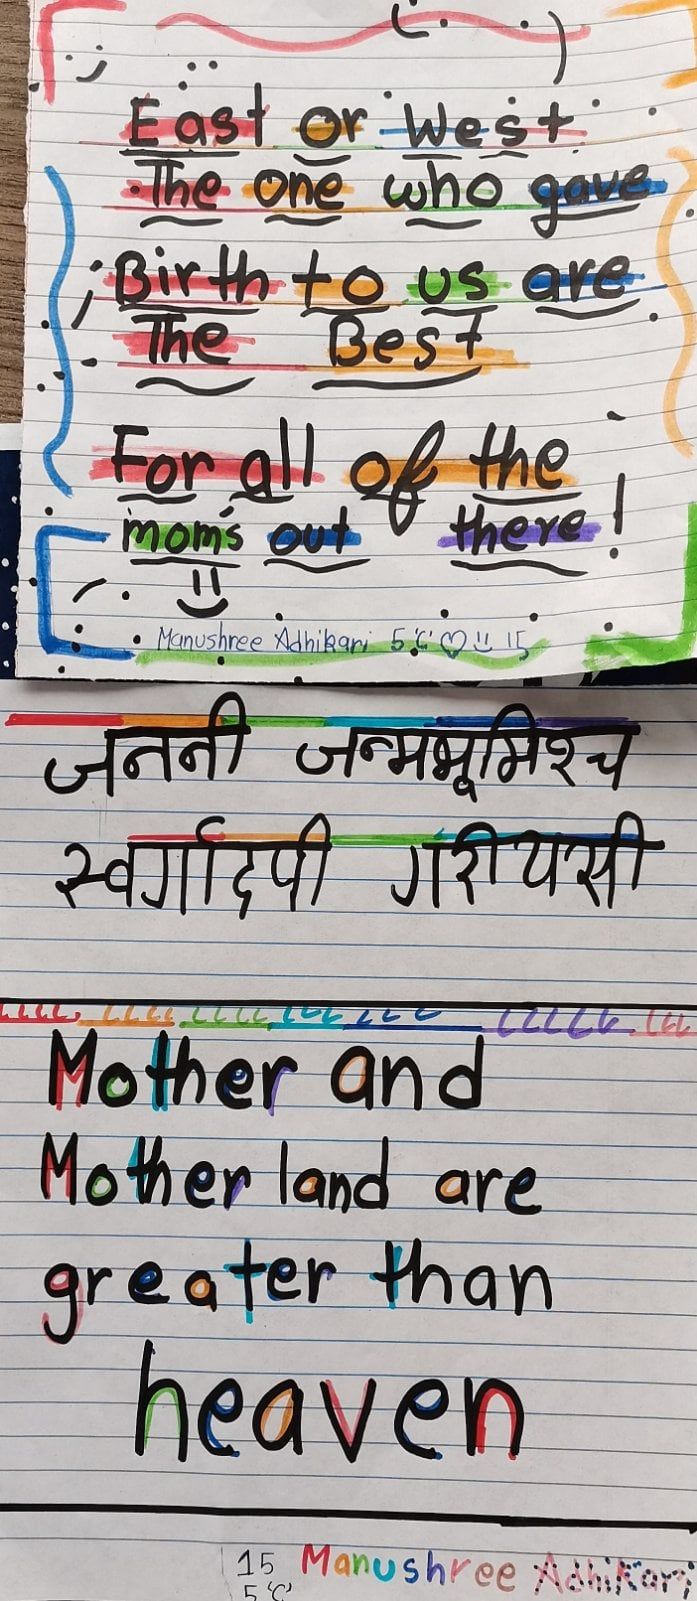 East or West
The one who gave
Birth to us are
The Best
For all of the
mom's out there!
Manushree Adhikari 5 'C' ♡ 15
जननी जन्मभूमिश्च
स्वर्गादपी गरीयसी
Mother and
Mother land are
greater than
heaven
15 Manushree Adhikari
5 'C'